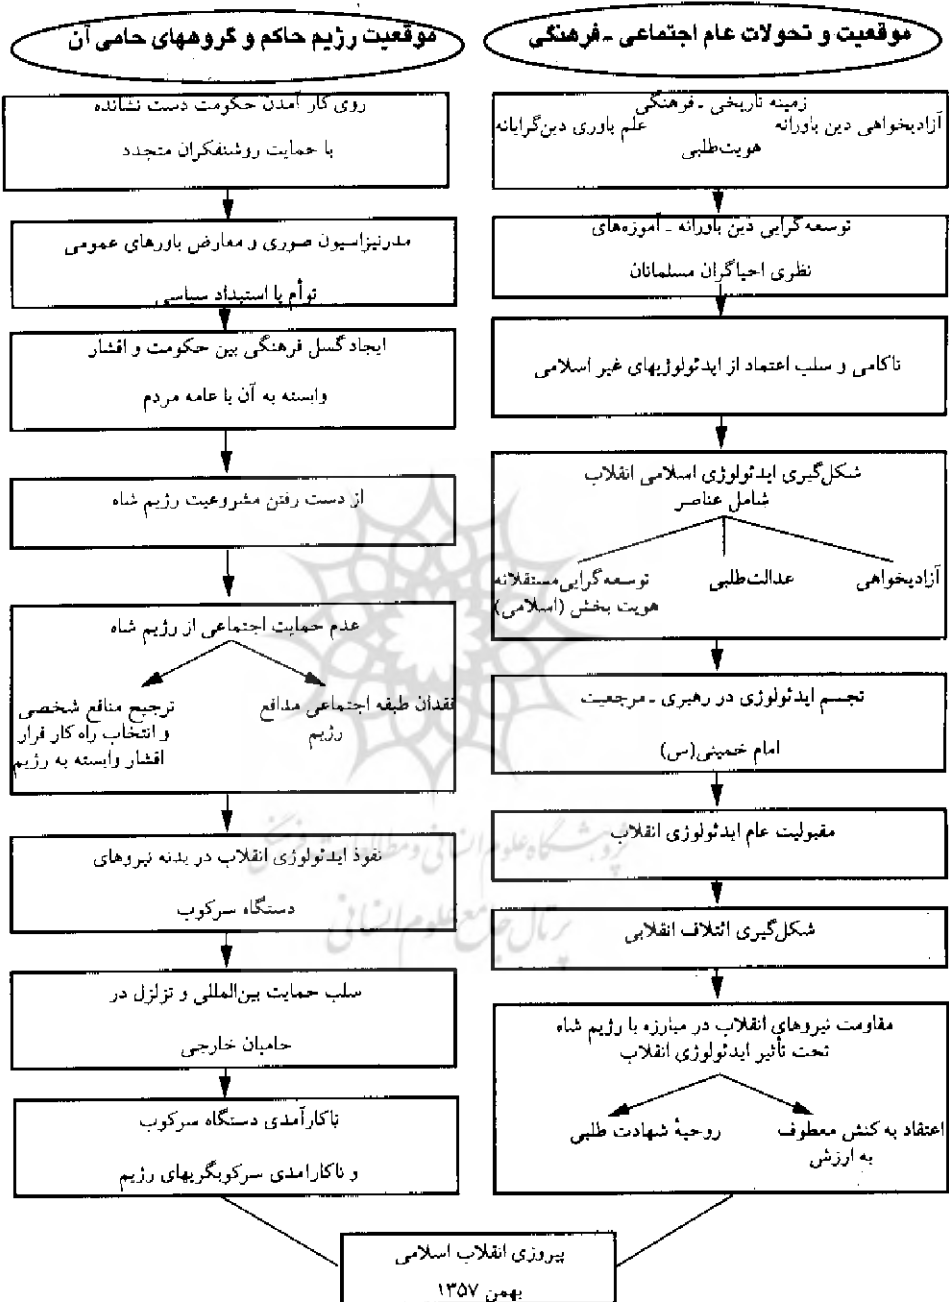 موقعیت و تحولات عام اجتماعی ـ فرهنگی
زمینه تاریخی ـ فرهنگی
آزادیخواهی دین باورانه علم باوری دین‌گرایانه
هویت‌طلبی
توسعه گرایی دین باورانه ـ آموزه‌های
نظری احیاگران مسلمانان
ناکامی و سلب اعتماد از ایدئولوژیهای غیر اسلامی
شکل‌گیری ایدئولوژی اسلامی انقلاب
شامل عناصر
آزادیخواهی عدالت‌طلبی توسعه گرایی مستقلانه
هویت بخش (اسلامی)
تجسم ایدئولوژی در رهبری ـ مرجعیت
امام خمینی(س)
مقبولیت عام ایدئولوژی انقلاب
شکل‌گیری ائتلاف انقلابی
مقاومت نیروهای انقلاب در مبارزه با رژیم شاه
تحت تأثیر ایدئولوژی انقلاب
اعتقاد به کنش معطوف روحیۀ شهادت طلبی
به ارزش
موقعیت رژیم حاکم و گروههای حامی آن
روی کار آمدن حکومت دست نشانده
با حمایت روشنفکران متجدد
مدرنیزاسیون صوری و معارض باورهای عمومی
توأم با استبداد سیاسی
ایجاد گسل فرهنگی بین حکومت و اقشار
وابسته به آن با عامه مردم
از دست رفتن مشروعیت رژیم شاه
عدم حمایت اجتماعی از رژیم شاه
فقدان طبقه اجتماعی مدافع ترجیح منافع شخصی
رژیم و انتخاب راه کار فرار
اقشار وابسته به رژیم
نفوذ ایدئولوژی انقلاب در بدنه نیروهای
دستگاه سرکوب
سلب حمایت بین‌المللی و تزلزل در
حامیان خارجی
ناکارآمدی دستگاه سرکوب
و ناکارامدی سرکوبگریهای رژیم
پیروزی انقلاب اسلامی
بهمن ۱۳۵۷
پژوهشگاه علوم انسانی و مطالعات فرهنگی
پرتال جامع علوم انسانی